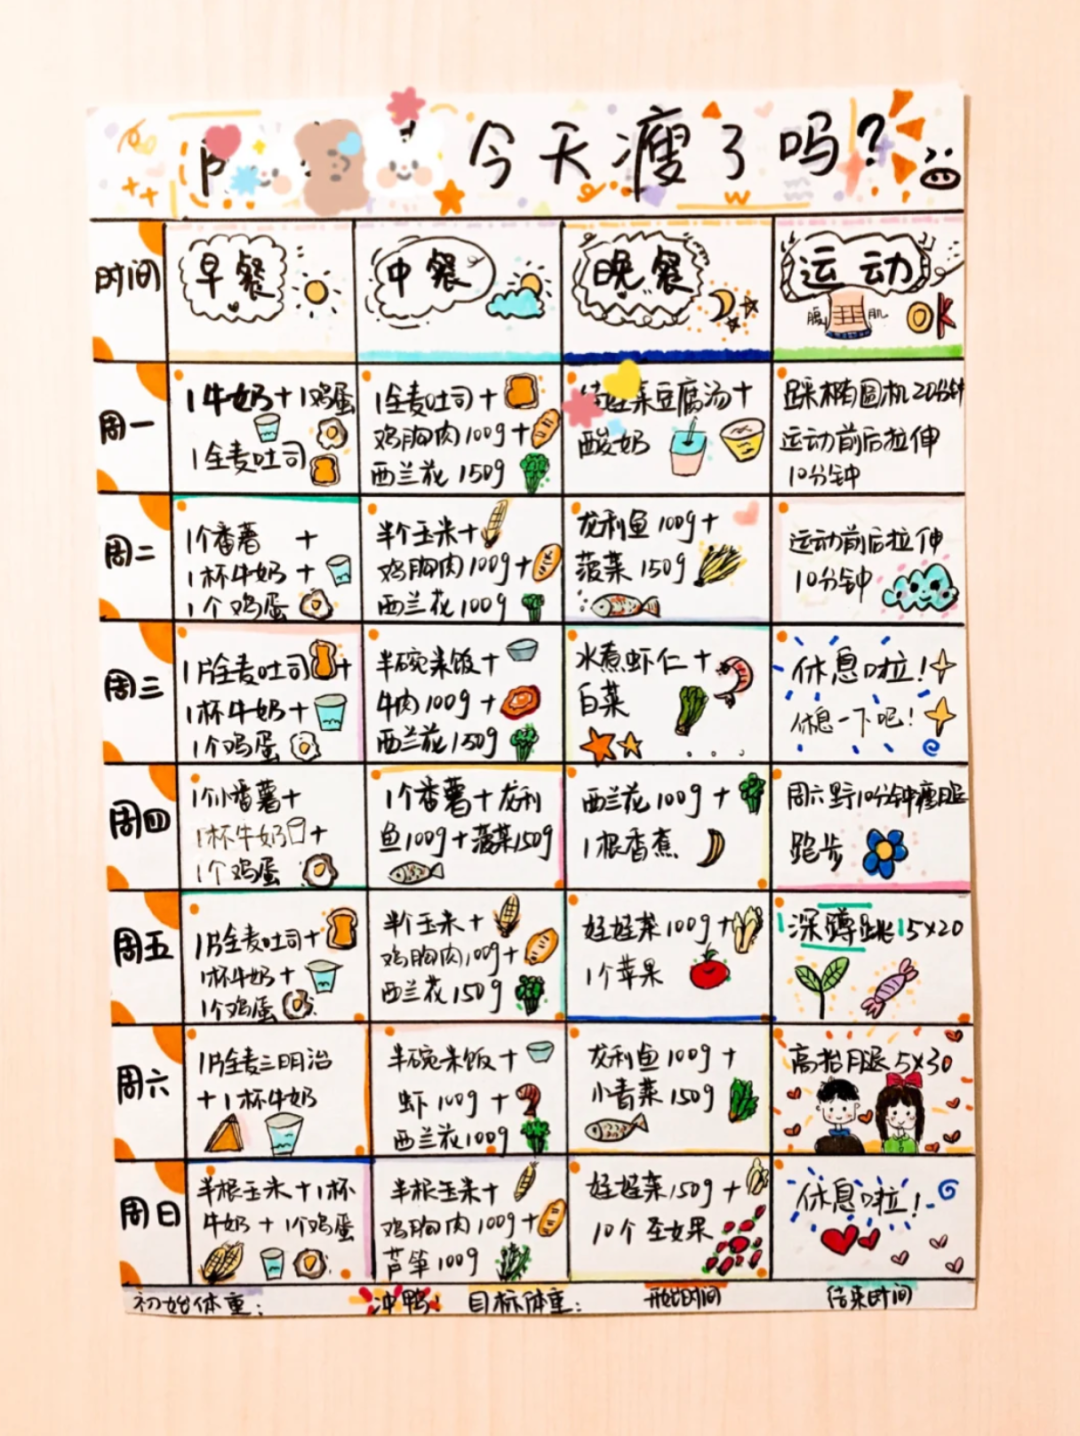 今天瘦了吗?
时间
早餐
中餐
晚餐
运动
腹
肌
OK
周一
1牛奶+1鸡蛋
1全麦吐司
1全麦吐司+
鸡胸肉100g+
西兰花150g
娃菜豆腐汤+
酸奶
踩椭圆机20分钟
运动前后拉伸
10分钟
周二
1个番薯 +
1杯牛奶+
1个鸡蛋
半个玉米+
鸡胸肉100g+
西兰花100g
龙利鱼100g+
菠菜150g
运动前后拉伸
10分钟
周三
1片全麦吐司+
1杯牛奶+
1个鸡蛋
半碗米饭+
牛肉100g+
西兰花150g
水煮虾仁+
白菜
休息啦!
休息一下吧!
周四
1个小番薯+
1杯牛奶+
1个鸡蛋
1个番薯+龙利
鱼100g+菠菜150g
西兰花100g+
1根香蕉
周六野10分钟瘦腿
跑步
周五
1片全麦吐司+
1杯牛奶+
1个鸡蛋
半个玉米+
鸡胸肉100g+
西兰花150g
娃娃菜100g+
1个苹果
深蹲跳15×20
周六
1片全麦三明治
+1杯牛奶
半碗米饭+
虾100g+
西兰花100g
龙利鱼100g+
小青菜150g
高抬腿5×30
周日
半根玉米+1杯
牛奶+1个鸡蛋
半根玉米+
鸡胸肉100g+
芦笋100g
娃娃菜150g+
10个圣女果
休息啦!
初始体重:
冲鸭!
目标体重:
开始时间
结束时间